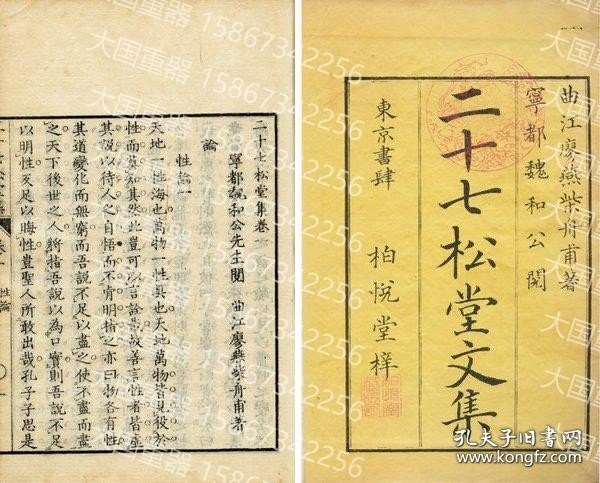 曲江廖燕柴舟甫著
寧都魏和公閱
二十七松堂文集
東京書肆 柏悅堂梓
二十七松堂集卷一
寧都魏和公先生閱 曲江廖燕柴舟甫著
論
性論一
天地一性海也萬物一性具也天地萬物皆見役於
性而莫知其然此豈可以言詮哉故善言性者皆虛
其說以待人之自悟而不肯明指之亦曰物各有性
其道變化而無窮而吾說不足以盡之使不盡而盡
之天下後世之人將指吾說以為口實則吾說不足
以明性反足以晦性豈聖人所敢出哉孔子子思是
性論
一
大国重器 15867342256
大国重器 15867342256
大国重器 15867342256
孔夫子旧书网
www.kongfz.com